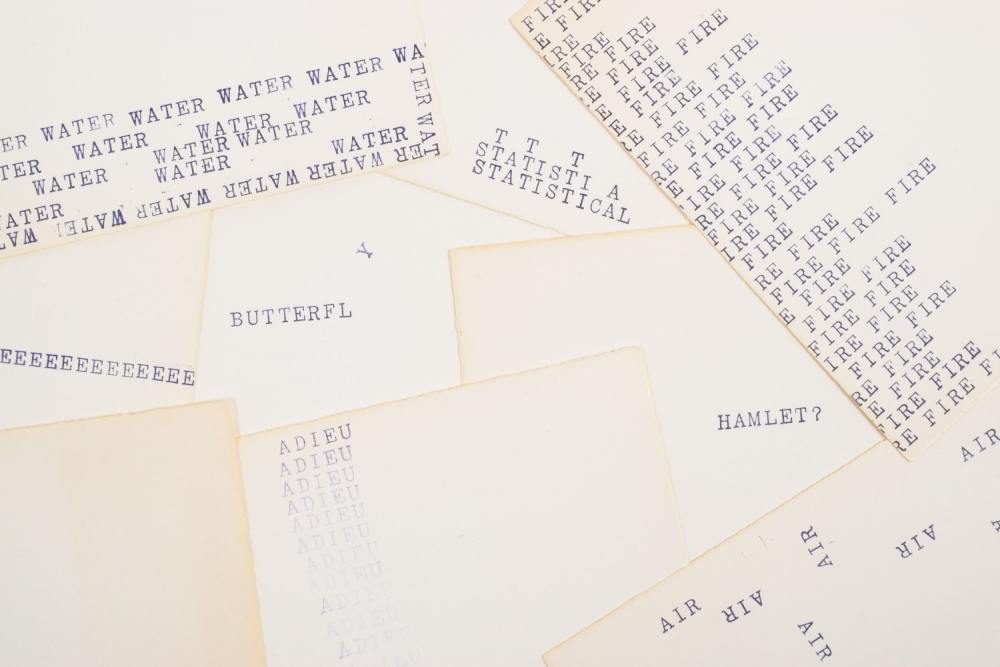 WATER WATER WATER WATER WA
WATER WATER WATER
WATER WATER
WATER WATER WATER
WATER
WATER WATER WATER WATER
WATER WAT
T T T
STATISTI A
STATISTICAL
FIRE
FIRE
FIRE
FIRE FIRE
FIRE FIRE
FIRE
FIRE FIRE FIRE
FIRE FIRE
FIRE FIRE FIRE
FIRE FIRE
FIRE FIRE FIRE
FIRE FIRE FIRE
FIRE
RE FIRE
FIRE FIRE FIRE
E FIRE
FIRE FIRE
FIRE FIRE
IRE FIRE
FIRE FIRE
RE FIRE
E FIRE
FIRE FIRE
RE FIRE FIRE FI
Y
BUTTERFL
EEEEEEEEEEEEEEEE
HAMLET?
ADIEU
ADIEU
ADIEU
ADIEU
ADIEU
ADIEU
ADIEU
ADIEU
ADIEU
ADIEU
ADIEU
AIR
AIR
AIR
AIR
AIR
AIR
AIR